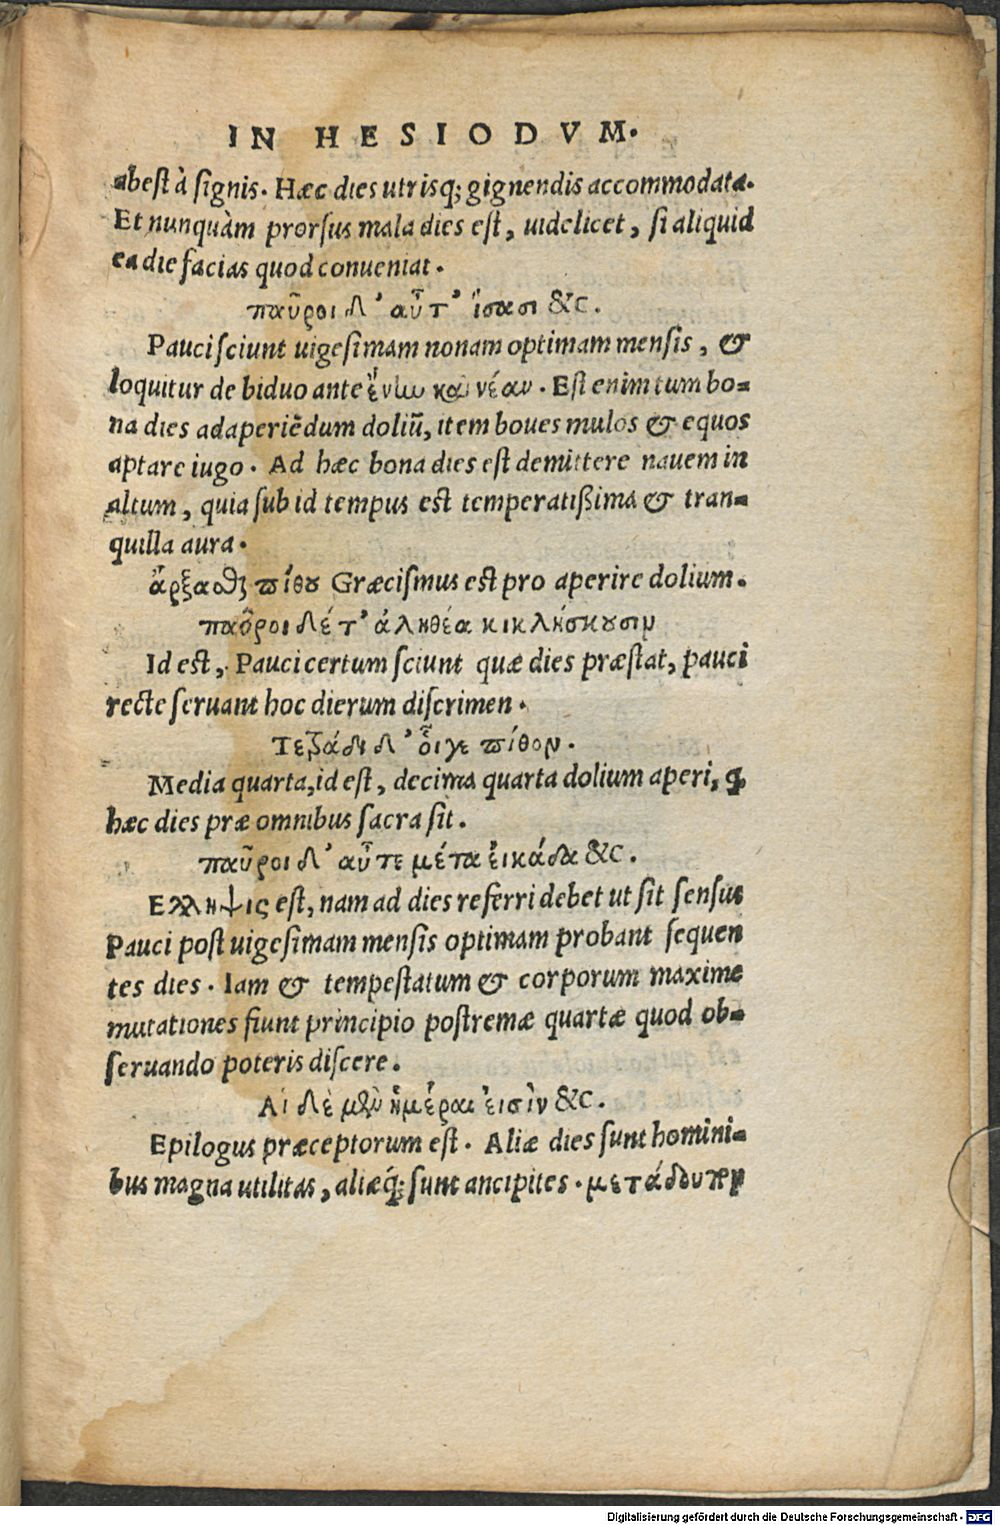 IN HESIODVM.
abest à signis. Hæc dies utrisq; gignendis accommodata.
Et nunquàm prorsus mala dies est, uidelicet, si aliquid
ea die facias quod conueniat.
παῦροι δ᾽ αὖτ᾽ ἴσασι &c.
Pauci sciunt uigesimam nonam optimam mensis, &
loquitur de biduo ante ἔνην καὶ νέαν. Est enim tum bo-
na dies ad aperiẽdum doliũ, item boues mulos & equos
aptare iugo. Ad hæc bona dies est demittere nauem in
altum, quia sub id tempus est temperatißima & tran-
quilla aura.
ἄρξασθαι πίθου Græcismus est pro aperire dolium.
παῦροι δέ τ᾽ ἀληθέα κικλήσκουσιν
Id est, Pauci certum sciunt quæ dies præstat, pauci
recte seruant hoc dierum discrimen.
Τετράδι δ᾽ οἶγε πίθον.
Media quarta, id est, decima quarta dolium aperi, ꝙ
hæc dies præ omnibus sacra sit.
παῦροι δ᾽ αὖτε μέτα ἐικάδα &c.
Ελληψις est, nam ad dies referri debet ut sit sensus
Pauci post uigesimam mensis optimam probant sequen
tes dies. Iam & tempestatum & corporum maxime
mutationes fiunt principio postremæ quartæ quod ob-
seruando poteris discere.
Αἱ δὲ μὲν ἡμέραι ἐισὶν &c.
Epilogus præceptorum est. Aliæ dies sunt homini-
bus magna utilitas, aliæq́; sunt ancipites.
Digitalisierung gefördert durch die Deutsche Forschungsgemeinschaft - DFG